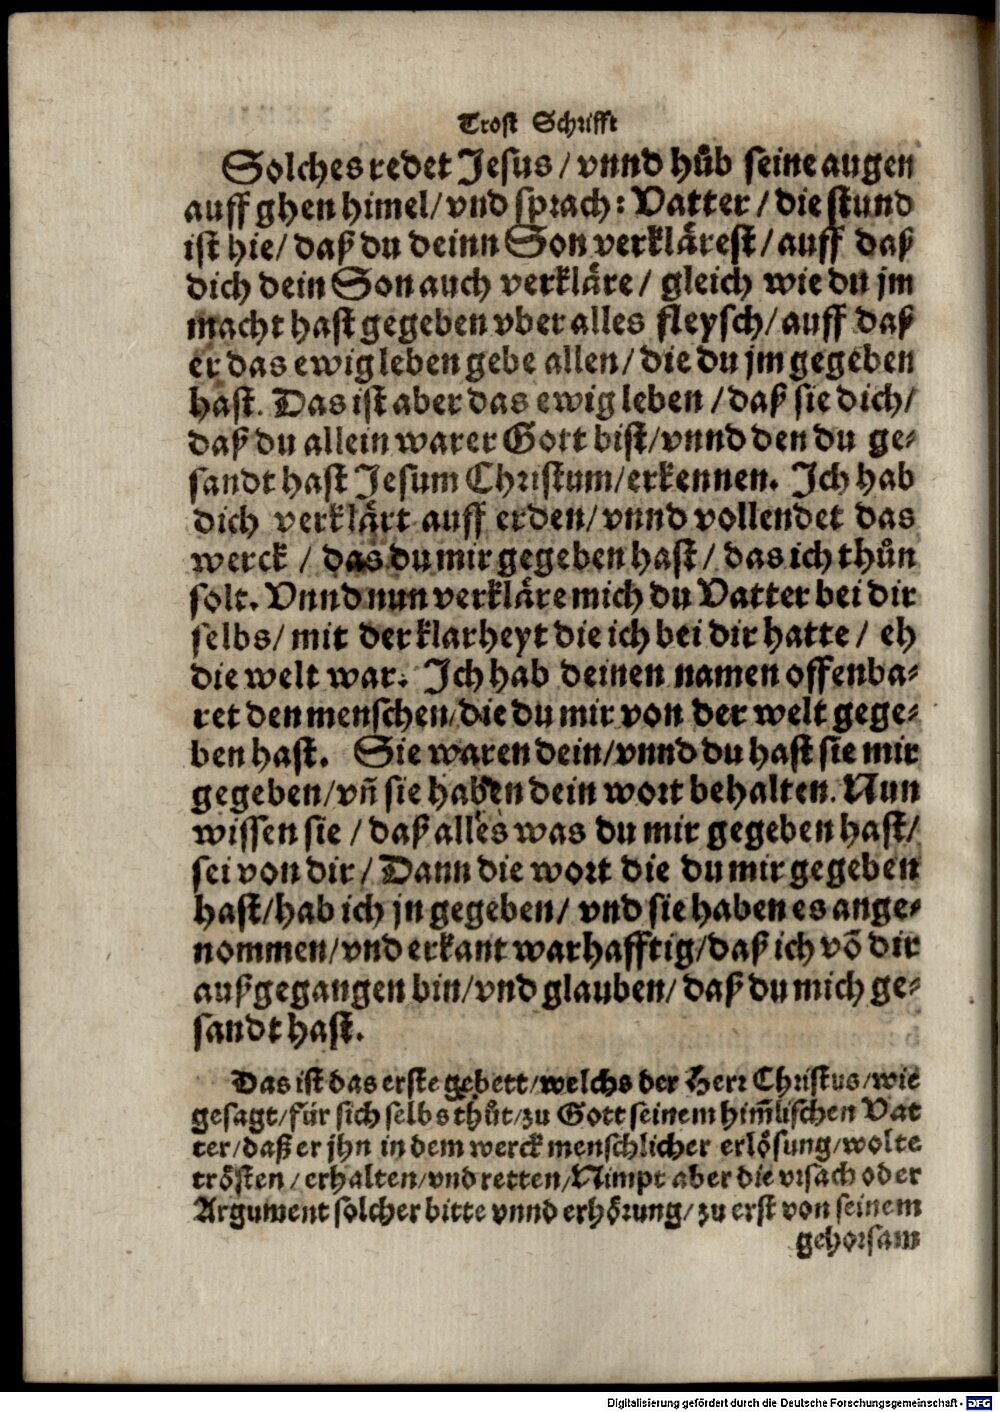 Trost Schrifft
Solches redet Jesus / vnnd hůb seine augen
auff ghen himel / vnd sprach: Vatter / die stund
ist hie / daß du deinn Son verklärest / auff daß
dich dein Son auch verkläre / gleich wie du jm
macht hast gegeben vber alles fleysch / auff daß
er das ewig leben gebe allen / die du jm gegeben
hast. Das ist aber das ewig leben / daß sie dich /
daß du allein warer Gott bist / vnnd den du ge⸗
sandt hast Jesum Christum / erkennen. Ich hab
dich verklärt auff erden / vnnd vollendet das
werck / das du mir gegeben hast / das ich thůn
solt. Vnnd nun verkläre mich du Vatter bei dir
selbs / mit der klarheyt die ich bei dir hatte / eh
die welt war. Ich hab deinen namen offenba⸗
ret den menschen / die du mir von der welt gege⸗
ben hast. Sie waren dein / vnnd du hast sie mir
gegeben / vñ sie haben dein wort behalten. Nun
wissen sie / daß alles was du mir gegeben hast /
sei von dir / Dann die wort die du mir gegeben
hast / hab ich jn gegeben / vnd sie haben es ange⸗
nommen / vnd erkant warhafftig / daß ich võ dir
außgegangen bin / vnd glauben / daß du mich ge⸗
sandt hast.
Das ist das erste gebett / welchs der Herr Christus / wie
gesagt / für sich selbs thůt / zu Gott seinem him̃lischen Vat
ter / daß er jhn in dem werck menschlicher erlösung / wolte
trösten / erhalten / vnd retten / Nimpt aber die vrsach oder
Argument solcher bitte vnnd erhörung / zu erst von seinem
gehorsam
Digitalisierung gefördert durch die Deutsche Forschungsgemeinschaft - DFG